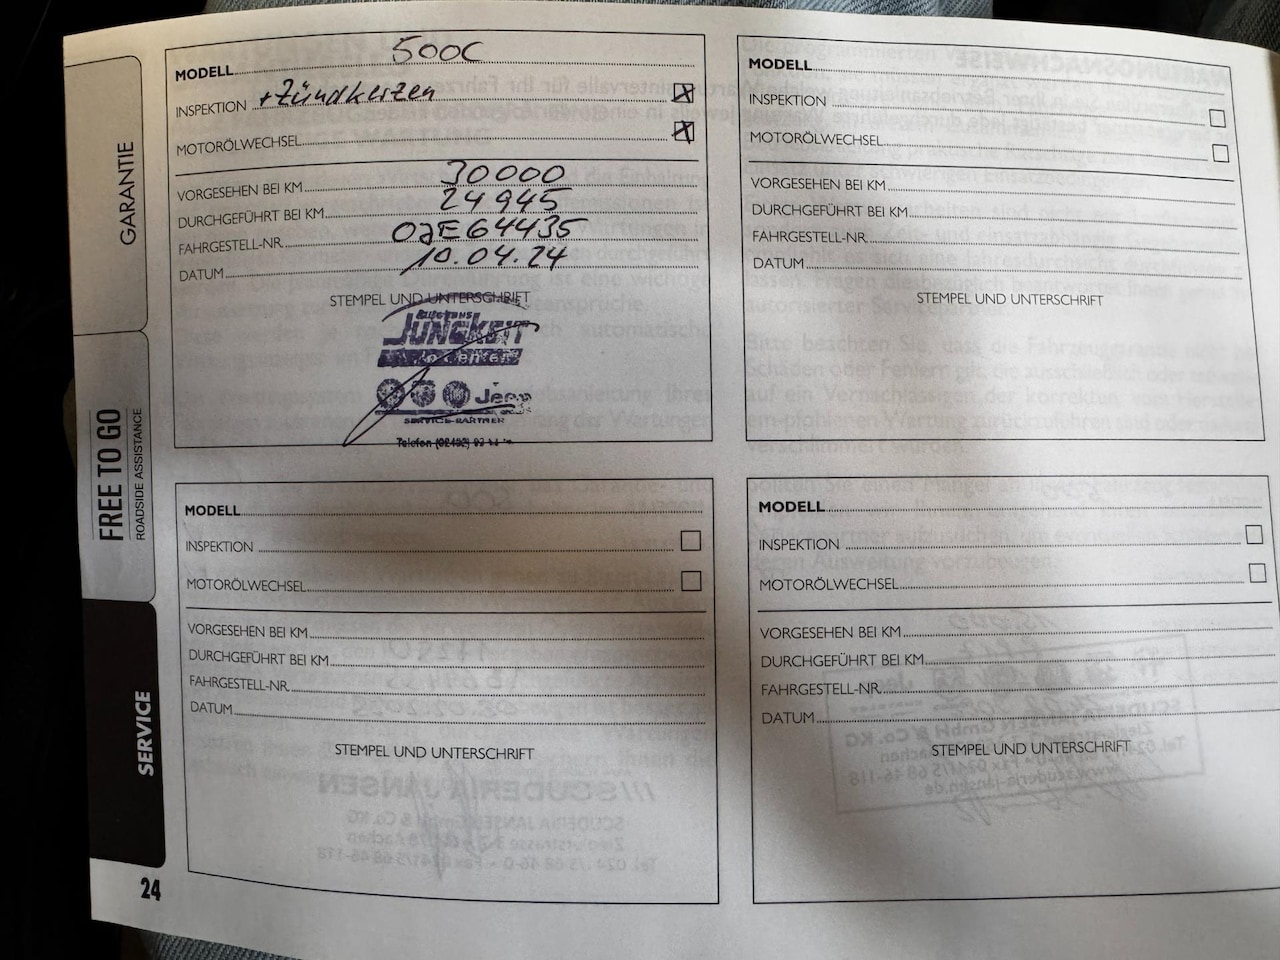 GARANTIE
FREE TO GO
ROADSIDE ASSISTANCE
SERVICE
24
MODELL 500C
INSPEKTION + Zündkerzen X
MOTORÖLWECHSEL X
VORGESEHEN BEI KM 30000
DURCHGEFÜHRT BEI KM 24945
FAHRGESTELL-NR. 0JE64435
DATUM 10.04.24
STEMPEL UND UNTERSCHRIFT
JUNGKEIT
Jeep
SERVICE-PARTNER
Telefon
MODELL
INSPEKTION
MOTORÖLWECHSEL
VORGESEHEN BEI KM
DURCHGEFÜHRT BEI KM
FAHRGESTELL-NR.
DATUM
STEMPEL UND UNTERSCHRIFT
MODELL
INSPEKTION
MOTORÖLWECHSEL
VORGESEHEN BEI KM
DURCHGEFÜHRT BEI KM
FAHRGESTELL-NR.
DATUM
STEMPEL UND UNTERSCHRIFT
MODELL
INSPEKTION
MOTORÖLWECHSEL
VORGESEHEN BEI KM
DURCHGEFÜHRT BEI KM
FAHRGESTELL-NR.
DATUM
STEMPEL UND UNTERSCHRIFT